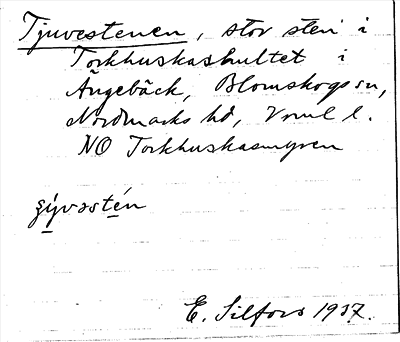 Tjuvestenen, stor sten i
Torkhuskashultet i
Ängebäck, Blomskogs sn,
Nordmarks hd, Vrml l.
NO Torkhuskasmyren
ȿývəstén
E. Silfors 1937.